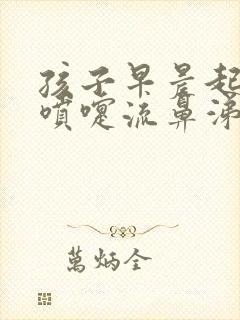 孩子早晨起
噴嚏流鼻涕
萬炳全